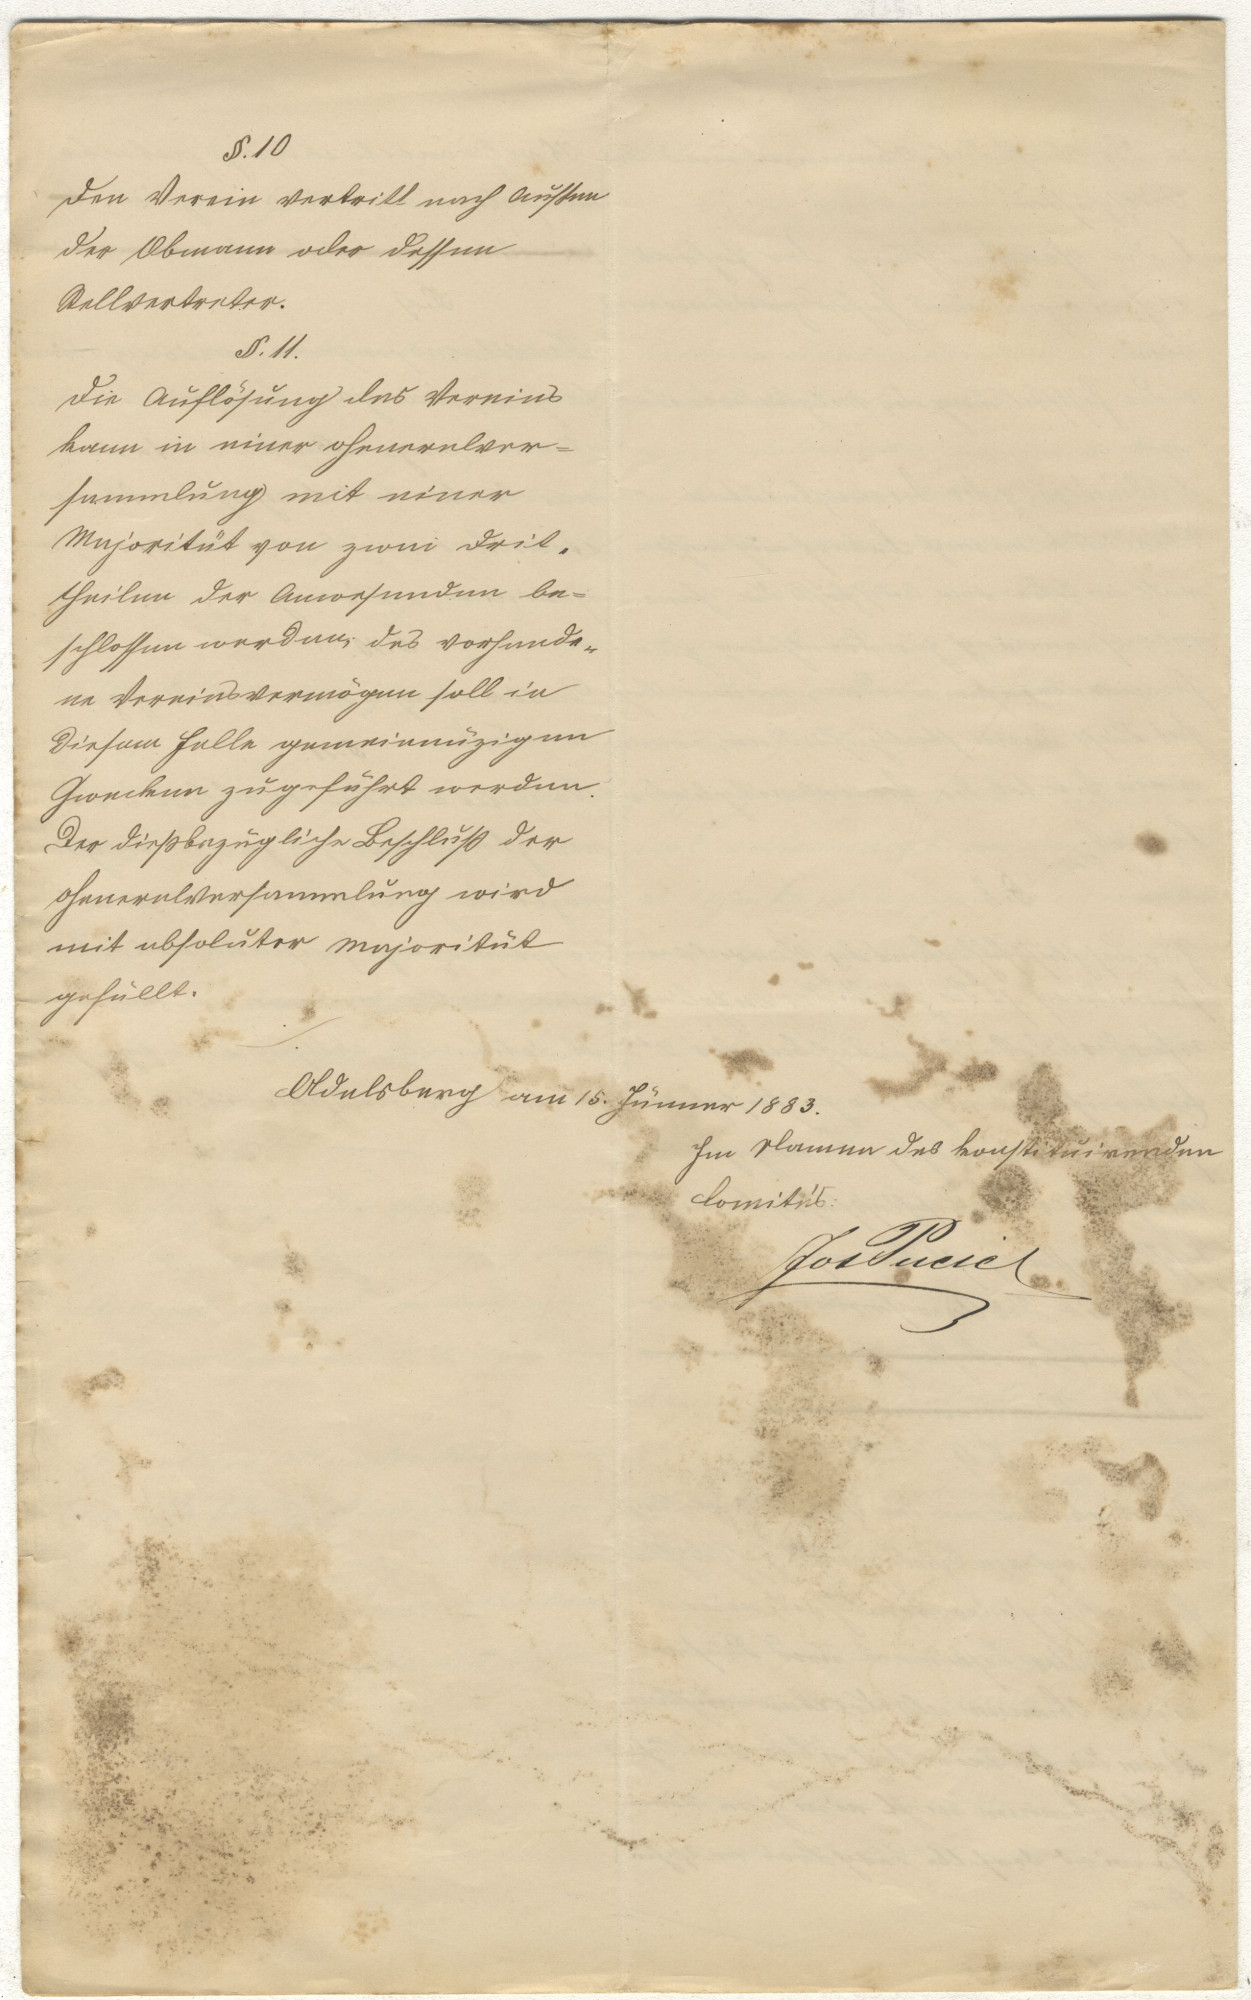 §. 10
Den Verein vertritt nach Außen
der Obmann oder dessen
Stellvertreter.
§. 11.
Die Auflösung des Vereins
kann in einer Generalver=
sammlung mit einer
Majorität von zwei Drit=
theilen der Anwesenden be=
schlossen werden; das vorhande=
ne Vereinsvermögen soll in
diesem Falle gemeinnüzigen
Zwecken zugeführt werden.
Der dießbezügliche Beschluß der
Generalversammlung wird
mit absoluter Majorität
gefällt.
Adelsberg am 15. Jänner 1883.
Im Namen des konstituirenden
Comités:
Jos